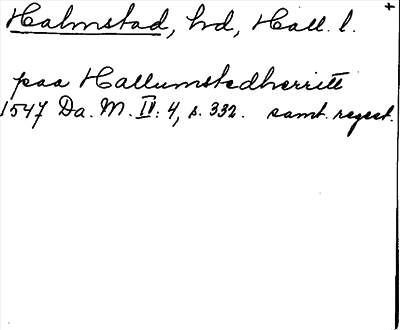 Halmstad, hd, Hall. l.
paa Hallumstedherritt
1547 Da. M. IV: 4, s. 332. samt. regest.